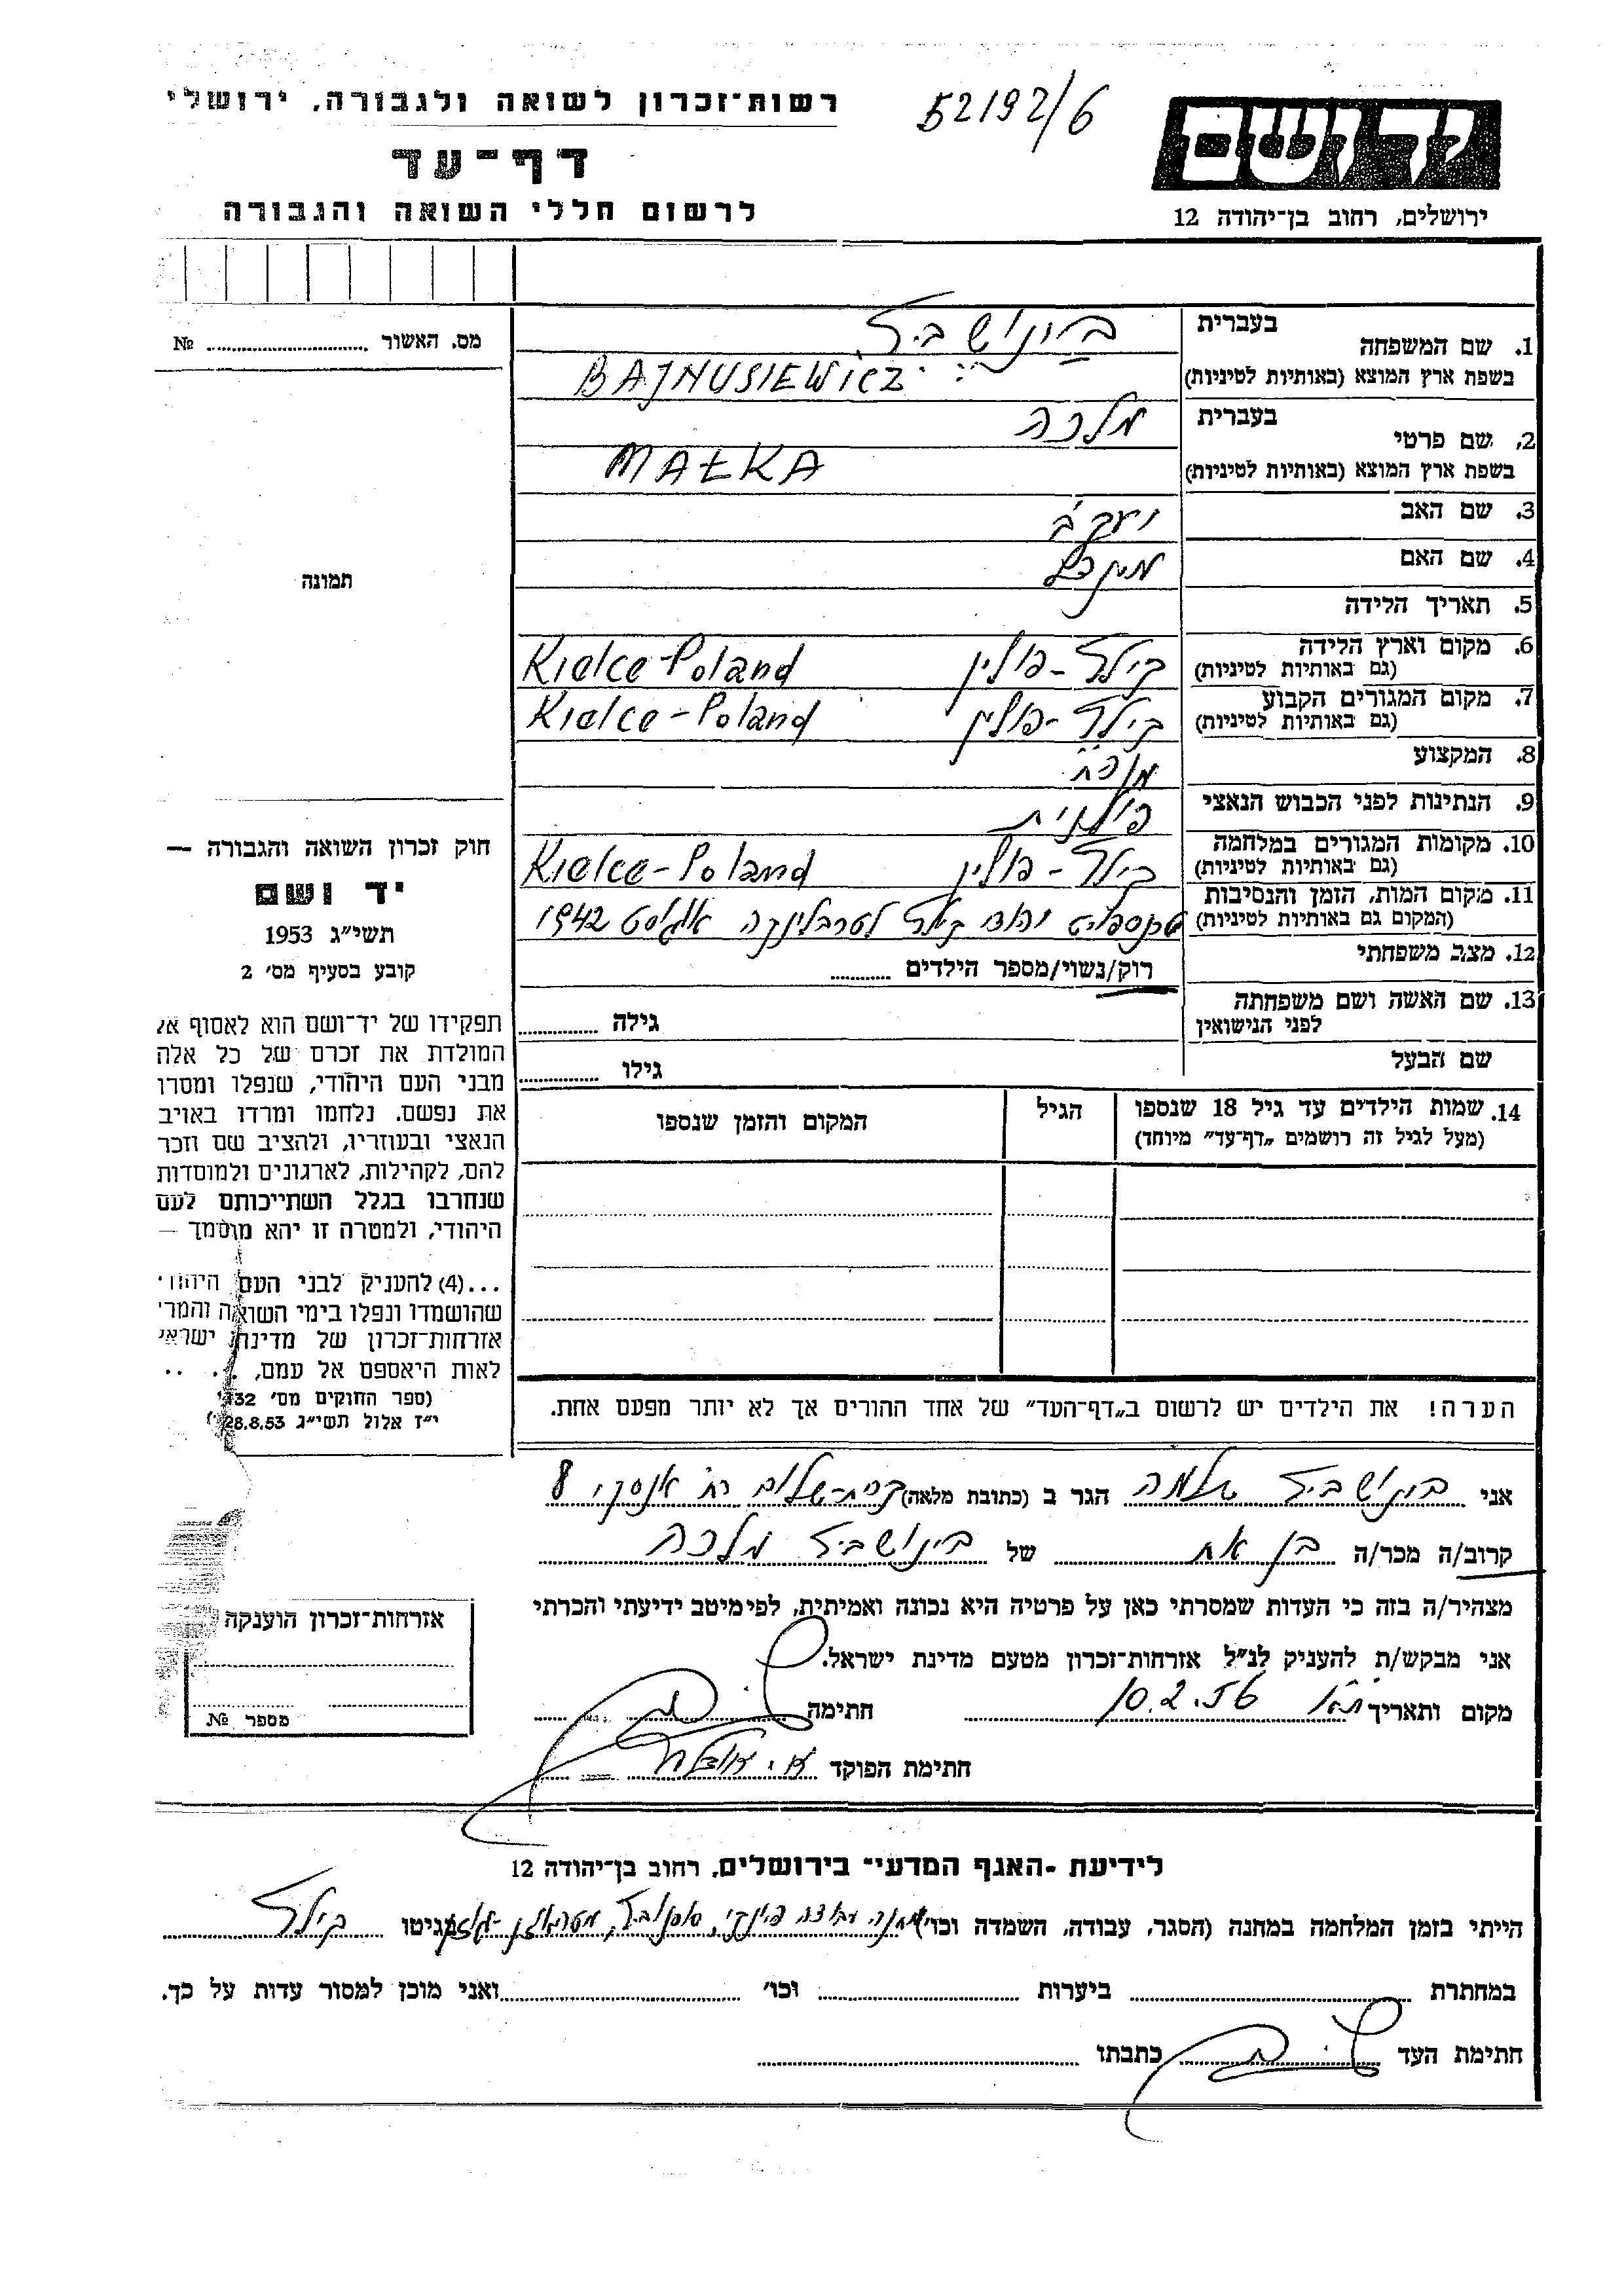 52192/6
רשות־זכרון לשואה ולגבורה, ירושלי
דף־עד
לרשום חללי השואה והגבורה
ידושם
ירושלים, רחוב בן־יהודה 12
מס. האשור № 
תמונה
1. שם המשפחה
בעברית
בינושביץ
בשפת ארץ המוצא (באותיות לטיניות)
BAJNUSIEWICZ
2. שם פרטי
בעברית
מלכה
בשפת ארץ המוצא (באותיות לטיניות)
MAŁKA
3. שם האב יעקב
4. שם האם
5. תאריך הלידה
6. מקום וארץ הלידה
(גם באותיות לטיניות)
קילץ - פולין Kielce-Poland
7. מקום המגורים הקבוע
(גם באותיות לטיניות)
קילץ - פולין Kielce-Poland
8. המקצוע
9. הנתינות לפני הכבוש הנאצי פולנית
10. מקומות המגורים במלחמה
(גם באותיות לטיניות)
קילץ - פולין Kielce-Poland
11. מקום המות, הזמן והנסיבות
(המקום גם באותיות לטיניות)
טרנספורט יהודי קילץ לטרבלינקה אוגוסט 1942
12. מצב משפחתי
רוק/נשוי/מספר הילדים
13. שם האשה ושם משפחתה
לפני הנישואין
גילה
שם הבעל
גילו
14. שמות הילדים עד גיל 18 שנספו
(מעל לגיל זה רושמים „דף־עד" מיוחד)
הגיל
המקום והזמן שנספו
הערה! את הילדים יש לרשום ב„דף־העד" של אחד ההורים אך לא יותר מפעם אחת.
חוק זכרון השואה והגבורה —
יד ושם
תשי״ג 1953
קובע בסעיף מס׳ 2
תפקידו של יד־ושם הוא לאסוף אל
המולדת את זכרם של כל אלה
מבני העם היהודי, שנפלו ומסרו
את נפשם. נלחמו ומרדו באויב
הנאצי ובעוזריו, ולהציב שם וזכר
להם, לקהילות, לארגונים ולמוסדות
שנחרבו בגלל השתייכותם לעם
היהודי, ולמטרה זו יהא מוסמך —
...(4) להעניק לבני העם היהודי
שהושמדו ונפלו בימי השואה והמרי
אזרחות־זכרון של מדינת ישראל
לאות היאספם אל עמם, . . .
(ספר החוקים מס׳ 132
י״ז אלול תשי״ג 28.8.53)
אני בינושביץ שלמה הגר ב (כתובת מלאה) קרית-שלום רח' אנסקי 8
קרוב/ה מכר/ה בן אח של בינושביץ מלכה
מצהיר/ה בזה כי העדות שמסרתי כאן על פרטיה היא נכונה ואמיתית, לפי מיטב ידיעתי והכרתי
אני מבקש/ת להעניק לנ״ל אזרחות־זכרון מטעם מדינת ישראל.
מקום ותאריך ת״א 10.2.56 חתימה
חתימת הפוקד
אזרחות־זכרון הוענקה
מספר №
לידיעת ״האגף המדעי״ בירושלים, רחוב בן־יהודה 12
הייתי בזמן המלחמה במחנה (הסגר, עבודה, השמדה וכו׳) מחנה עבודה בגיטו קילץ
במחתרת ביערות וכו׳ ואני מוכן למסור עדות על כך.
חתימת העד כתבתו